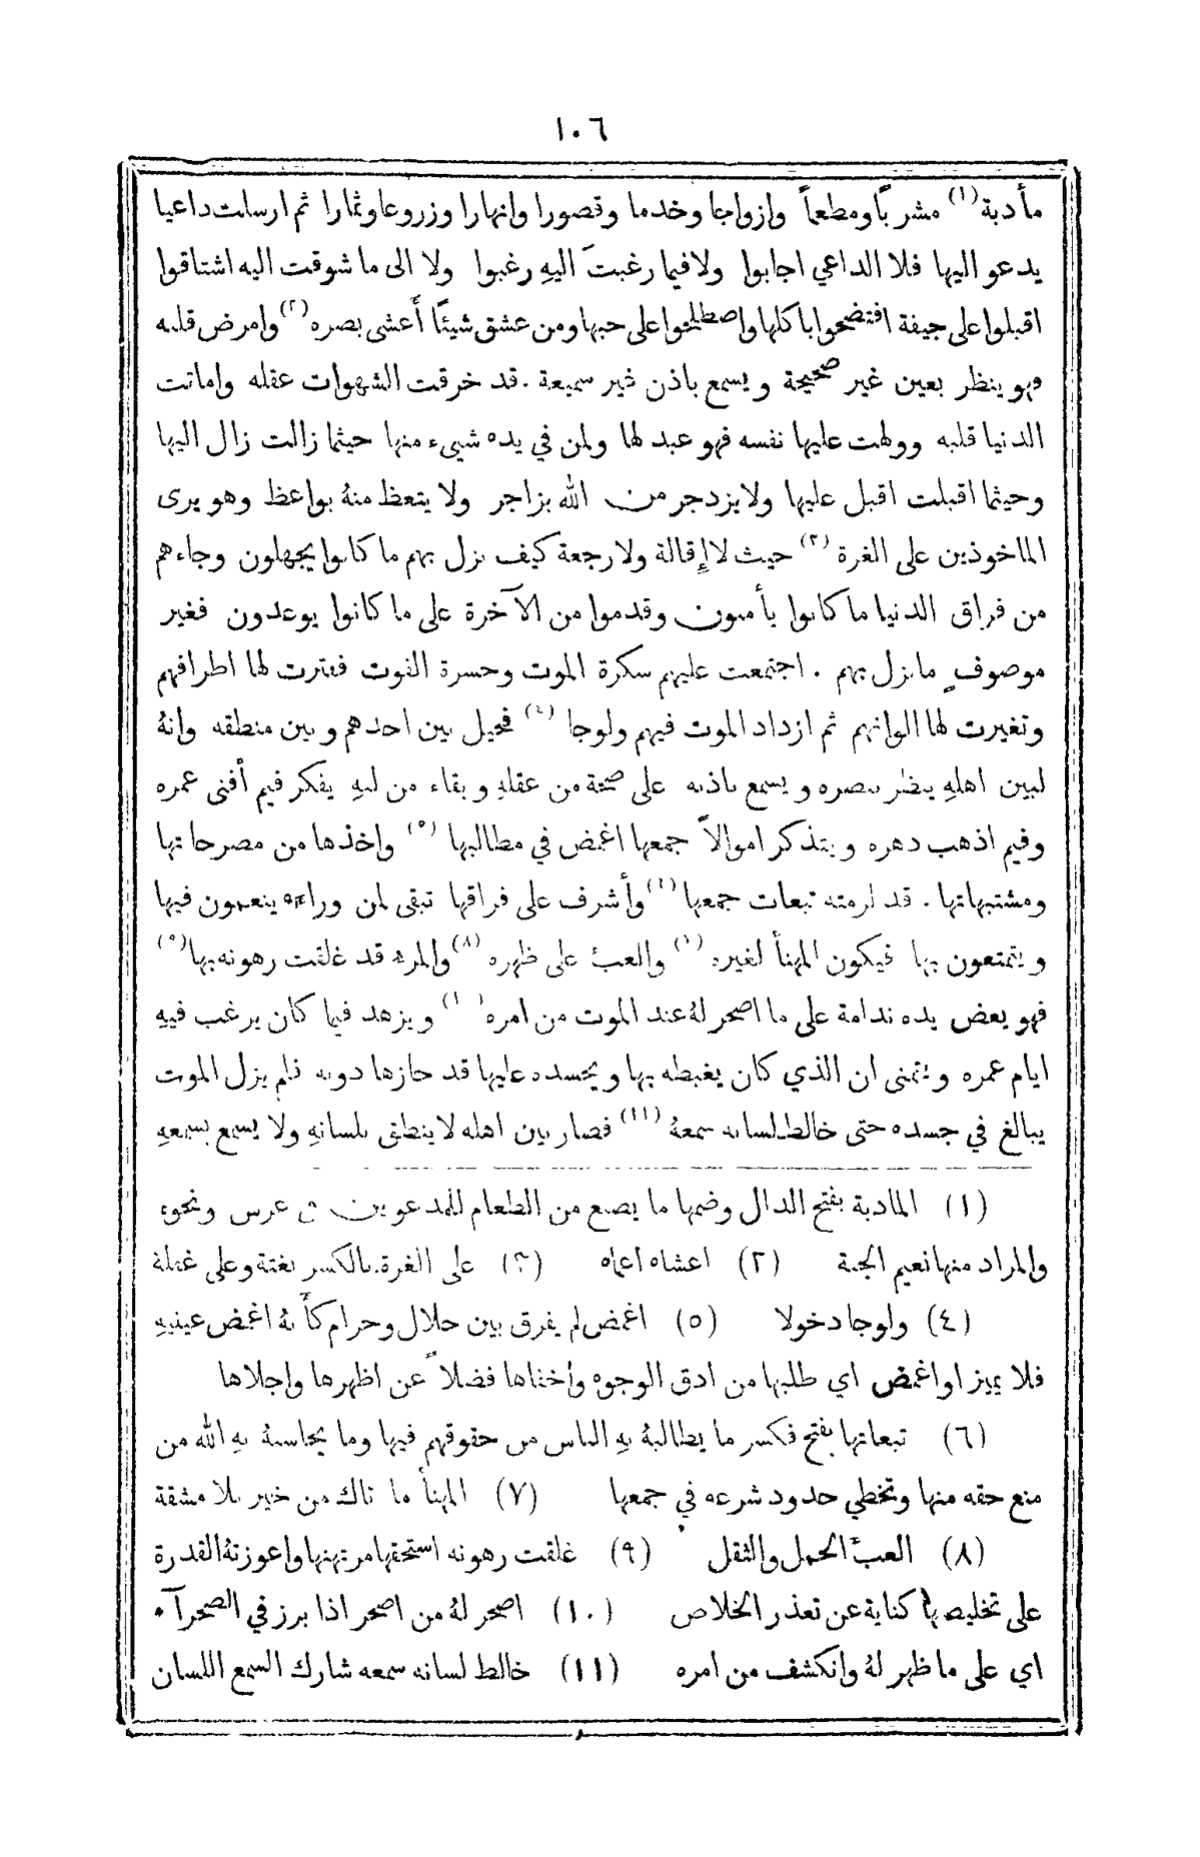 ١٠٦
مأدبة (١) مشرباً ومطعماً وازواجا وخدما وقصورا وانهارا وزروعا وثمارا ثم ارسلت داعيا
يدعو اليها فلا الداعي اجابوا ولا فيما رغبتَ اليهِ رغبوا ولا الى ما شوقت اليه اشتاقوا
اقبلوا على جيفة افتضحوا باكلها واصطلحوا على حبها ومن عشق شيئًا أعشى بصره (٢) وامرض قلبه
فهو ينظر بعين غير صحيحة ويسمع باذن غير سميعة . قد خرقت الشهوات عقله واماتت
الدنيا قلبه وولهت عليها نفسه فهو عبد لها ولمن في يده شيىء منها حيثما زالت زال اليها
وحيثما اقبلت اقبل عليها ولا يزدجر من الله بزاجر ولا يتعظ منهُ بواعظ وهو يرى
الماخوذين على الغرة (٣) حيث لا إِقالة ولا رجعة كيف نزل بهم ما كانوا يجهلون وجاءهم
من فراق الدنيا ما كانوا يأمنون وقدموا من الآخرة على ما كانوا يوعدون فغير
موصوفٍ ما نزل بهم . اجتمعت عليهم سكرة الموت وحسرة الفوت ففترت لها اطرافهم
وتغيرت لها الوانهم ثم ازداد الموت فيهم ولوجا (٤) فحيل بين احدهم وبين منطقه وانهُ
لبين اهلهِ ينظر ببصره ويسمع باذنه على صحة من عقلهِ وبقاء من لبهِ يفكر فيم أفنى عمره
وفيم اذهب دهره ويتذكر اموالاً جمعها اغمض في مطالبها (٥) واخذها من مصرحاتها
ومشتبهاتها . قد لزمته تبعات جمعها (٦) وأشرف على فراقها تبقى لمن وراءه ينعمون فيها
ويتمتعون بها فيكون المهنأ لغيره (٧) والعبْ على ظهره (٨) والمرء قد غلقت رهونه بها (٩)
فهو يعض يده ندامة على ما اصحر لهُ عند الموت من امره (١٠) ويزهد فيما كان يرغب فيهِ
ايام عمره ويتمنى ان الذي كان يغبطه بها ويحسده عليها قد حازها دونه فلم يزل الموت
يبالغ في جسده حتى خالط لسانه سمعهُ (١١) فصار بين اهله لا ينطق بلسانهِ ولا يسمع بسمعهِ
(١) المادبة بفتح الدال وضمها ما يصنع من الطعام للمدعوين في عرس ونحوه
والمراد منها نعيم الجنة (٢) اعشاه اعماه (٣) على الغرة بالكسر بغتة وعلى غفلة
(٤) ولوجا دخولا (٥) اغمض لم يفرق بين حلال وحرام كأنهُ اغمض عينيهِ
فلا يميز او اغمض اي طلبها من ادق الوجوه واخفاها فضلاً عن اظهرها واجلاها
(٦) تبعاتها بفتح فكسر ما يطالبهُ بهِ الناس من حقوقهم فيها وما يحاسبهُ بهِ الله من
منع حقه منها وتخطي حدود شرعه في جمعها (٧) المهنأ ما تاك من خير بلا مشقة
(٨) العبْ الحمل والثقل (٩) غلقت رهونه استحقها مرتهنها واعوزتهُ القدرة
على تخليصها كناية عن تعذر الخلاص (١٠) اصحر لهُ من اصحر اذا برز في الصحرآء
اي على ما ظهر لهُ وانكشف من امره (١١) خالط لسانه سمعه شارك السمع اللسان